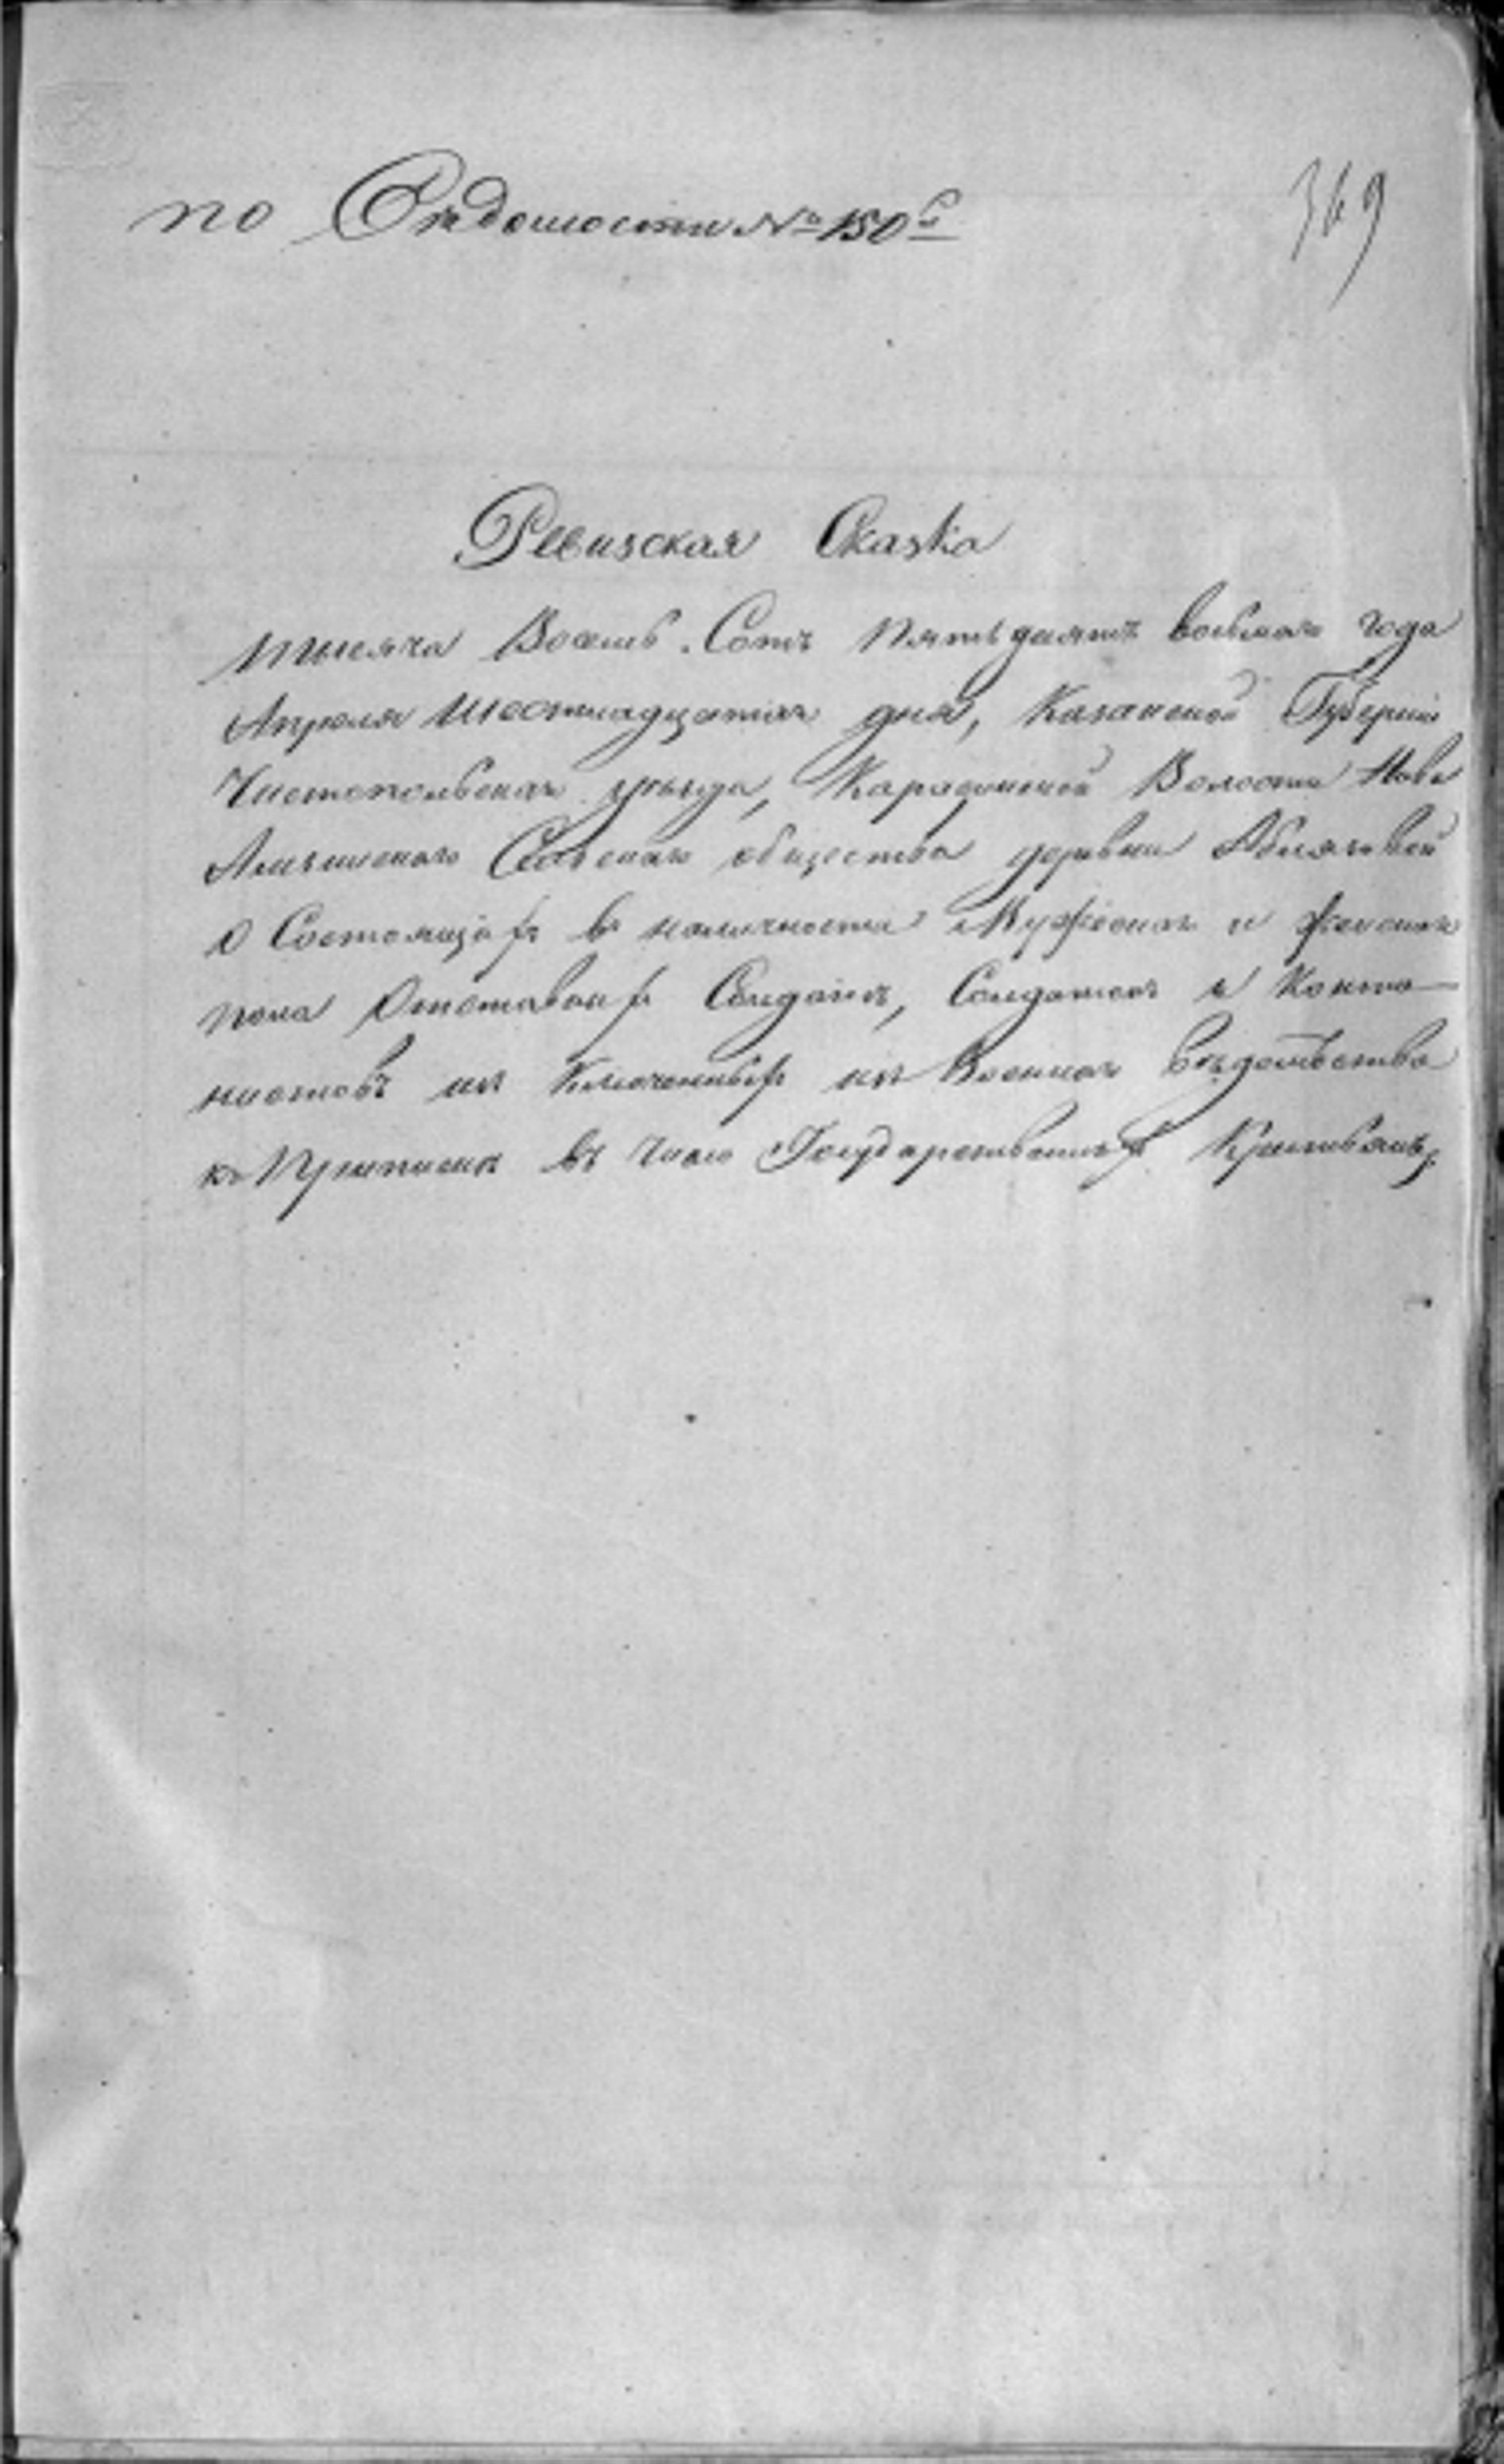 по Ведомости № 150й
369
Ревизская Сказка
тысяча Восемь Сотъ Пятьдесятъ восьмаго года
Апреля Шестнадцатаго дня, Казанской Губерніи
Чистопольскаго уезда, Волости Ново
Сельскаго общества деревни
О Состоящихъ в наличности Мужескаго и женскаго
пола Отставныхъ Солдатъ, Солдатокъ и Канто
нистовъ исключенныхъ изъ Военнаго ведомства
къ Приписке въ число Государственныхъ Крестьянъ